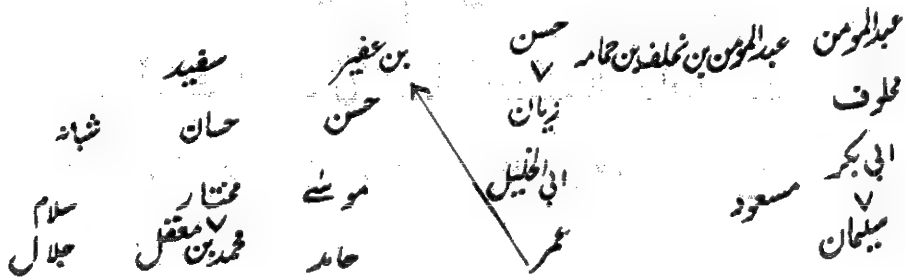 عبدالمومن
عبدالمومن بن نملفہ بن حمامہ
حسن
بن عفیر
سفید
مخلوف
زیان
حسن
حسان
شبانہ
ابی بکر
مسعود
ابی الخلیل
موسے
مختار
سلام
سلیمان
عمر
حامد
محمد بن معقل
جلال